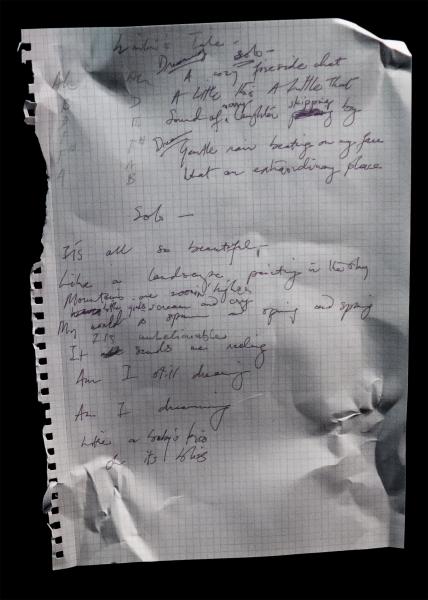 Winter's Tale -
Drums Solo -
A cosy fireside chat
D A little this A little that
E Sound of nervy laughter skipping by
F# Drum Gentle rain beating on my face
A
B What an extraordinary place
Solo -
It's all so beautiful,
Like a landscape painting in the sky
Mountains are zooming higher
little girls scream and cry
My world is spinning and spinning and spinning
It's unbelievable
It sends me reeling
Am I still dreaming
Am I dreaming
Like a baby's kiss
its bliss